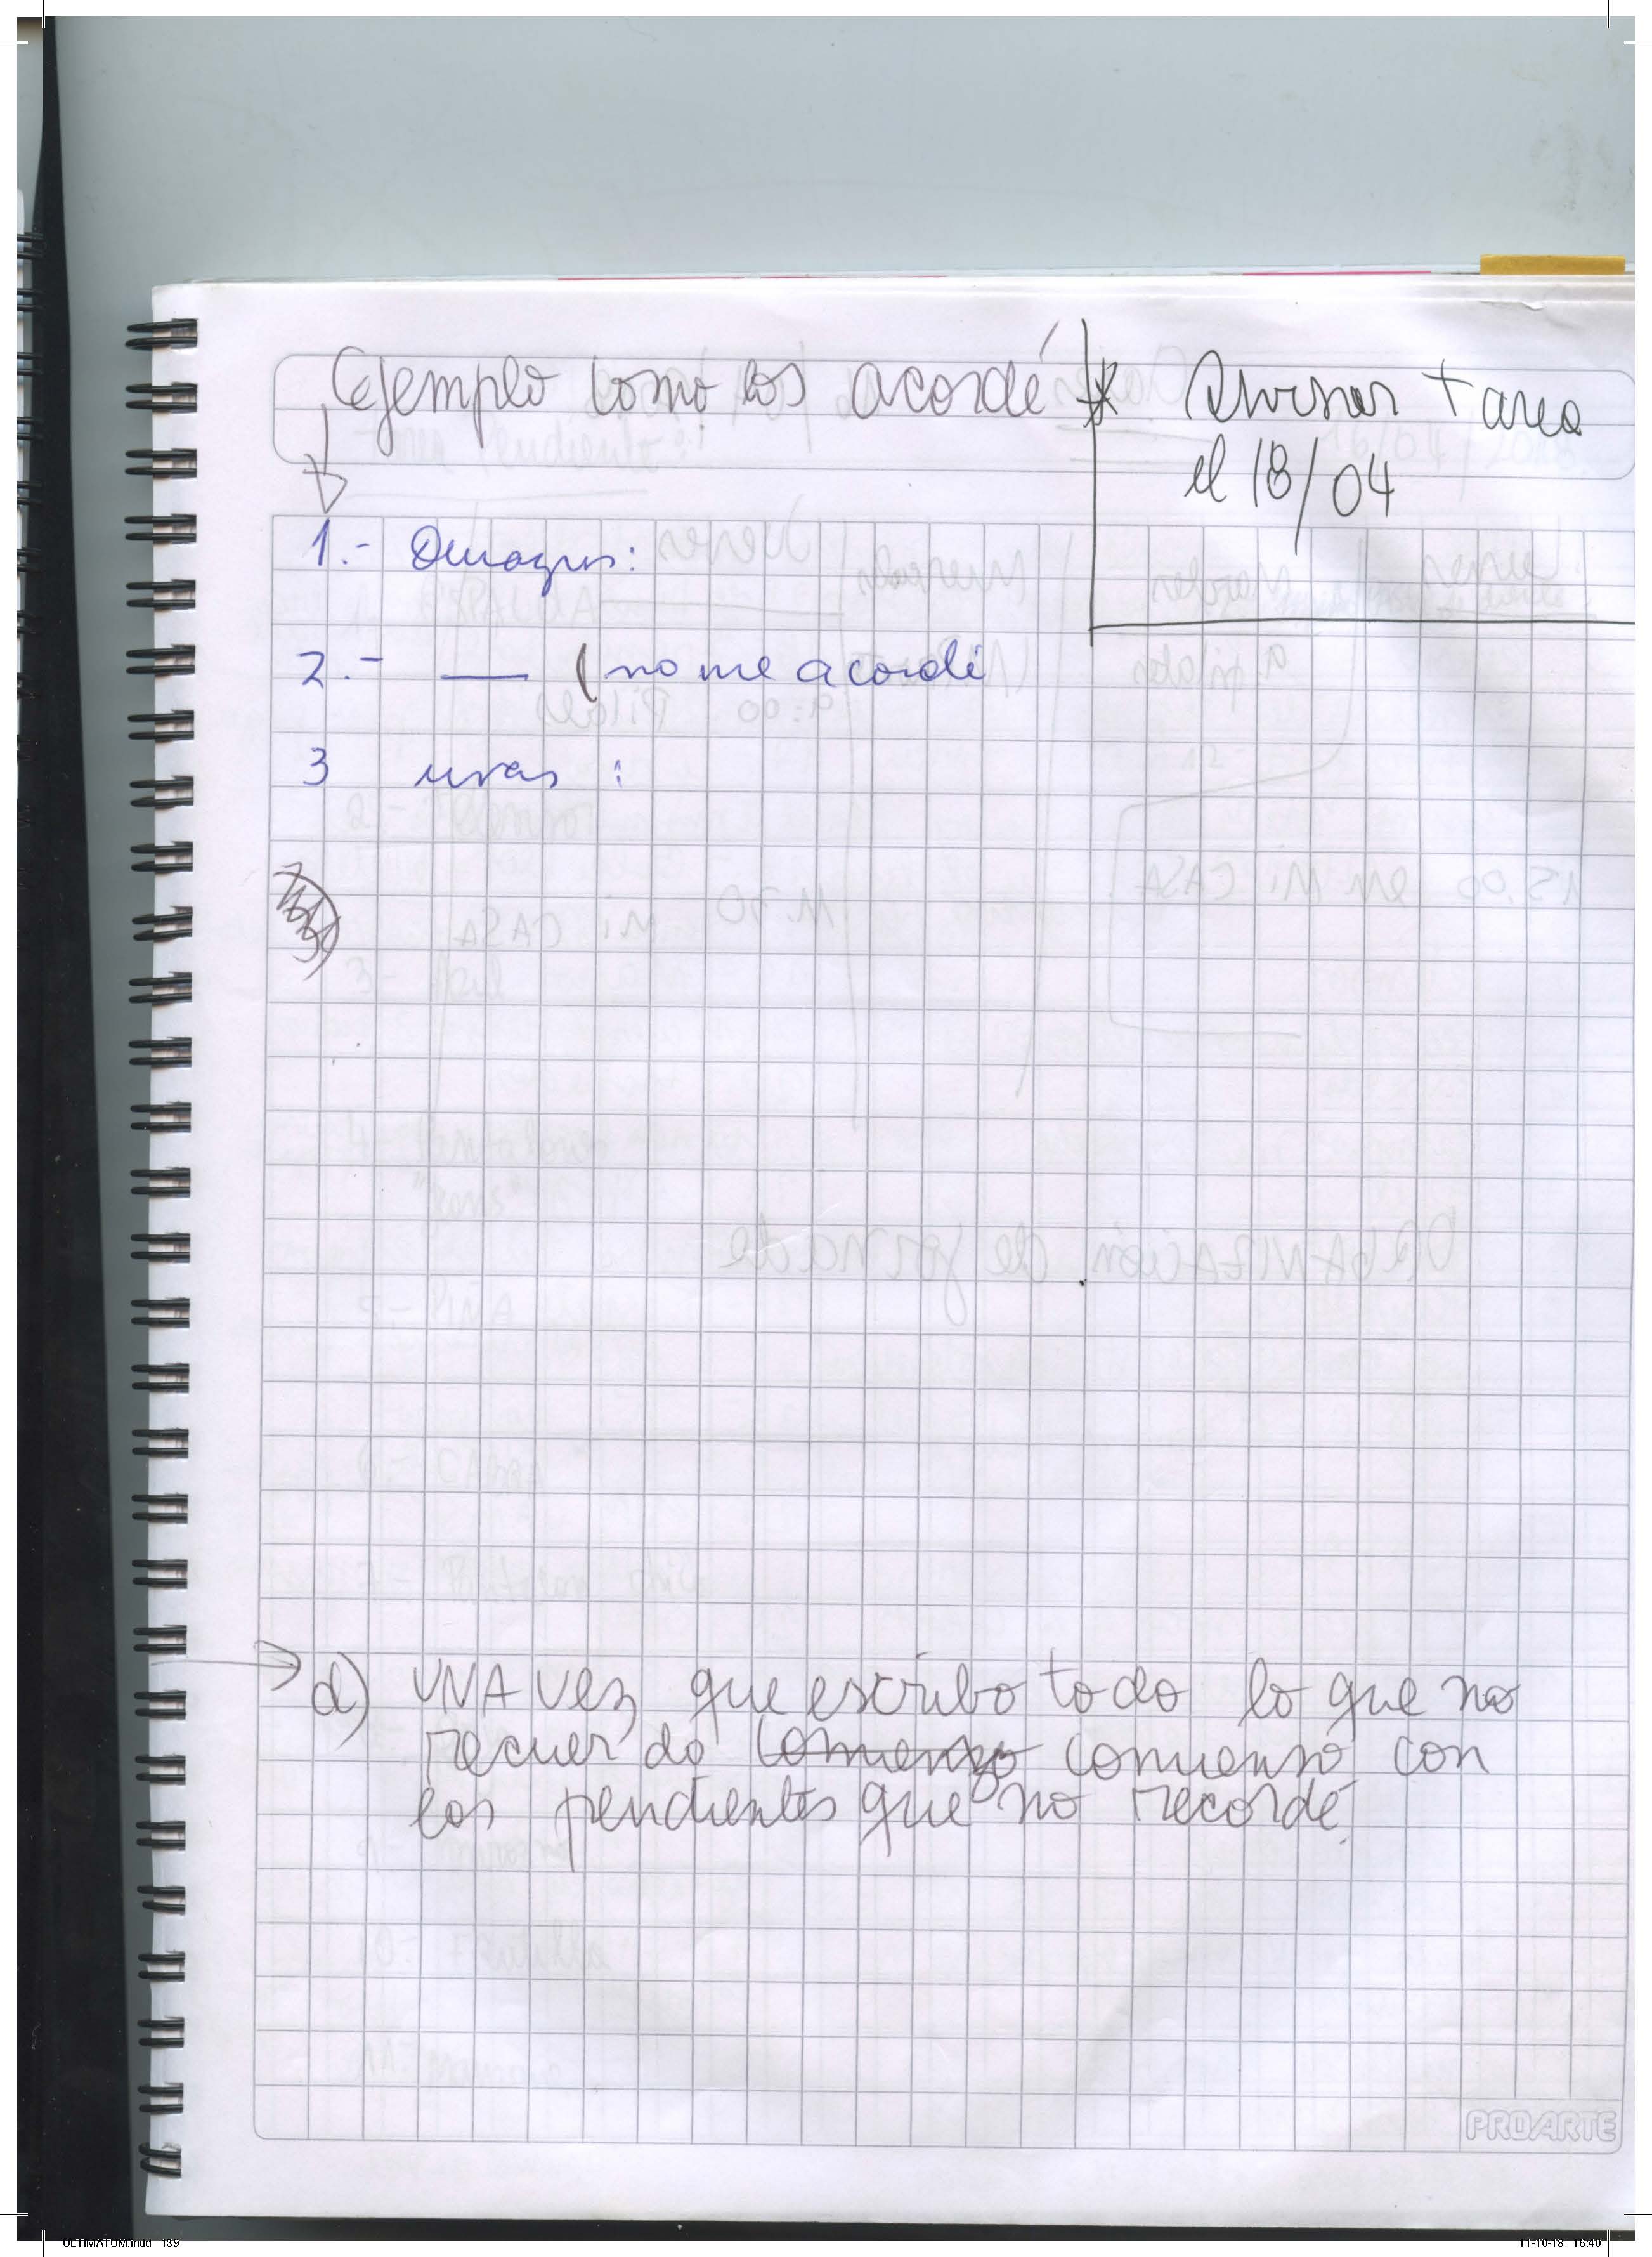 Ejemplo como los acordé
* Revisar tarea
el 18/04
1.- Duraznos:
2.- — (no me acordé
3 uvas :
d) UNA vez que escribo todo lo que no
recuerdo comienzo comienzo con
los pendientes que no recordé.
PROARTE
ULTIMATUM.indd 139
11-10-18 16:40